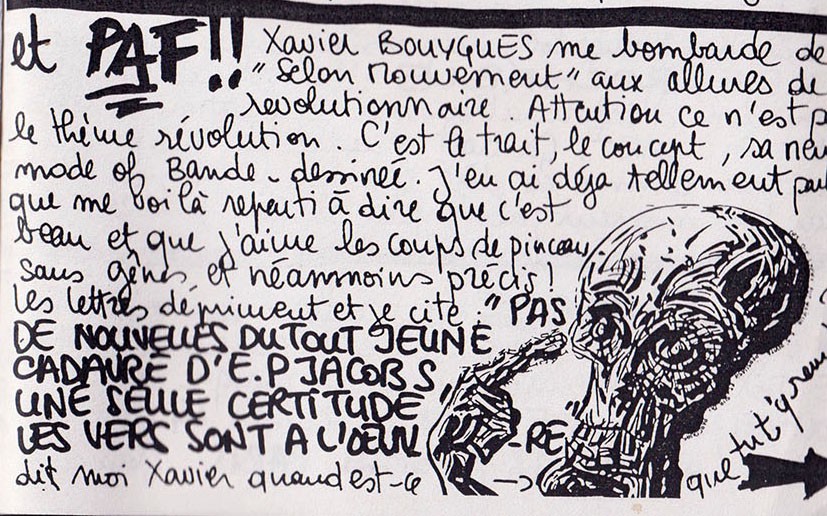 et PAF!! Xavier BOUYGUES me bombarde de
"Selon Mouvement" aux allures de
revolutionnaire. Attention ce n'est p
le thème révolution. C'est le trait, le concept, sa neu
mode of Bande-dessinée. J'en ai déja tellement parl
que me voilà repenti à dire que c'est
beau et que j'aime les coups de pinceau
sans gênes et néanmoins précis!
Les lettres dépriment et je cite: "PAS
DE NOUVELLES DU TOUT JEUNE
CADAVRE D'E.P JACOBS
UNE SEULE CERTITUDE
LES VERS SONT A L'ŒUV -RE"
dit moi Xavier quand est-ce → que tut'